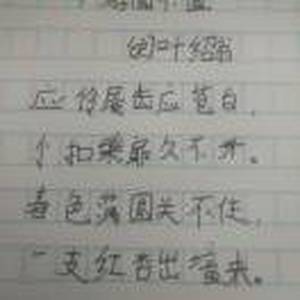 园不值
叶绍翁
应怜屐齿应苍白，
小扣柴扉久不开。
春色满园关不住，
一支红杏出墙来。